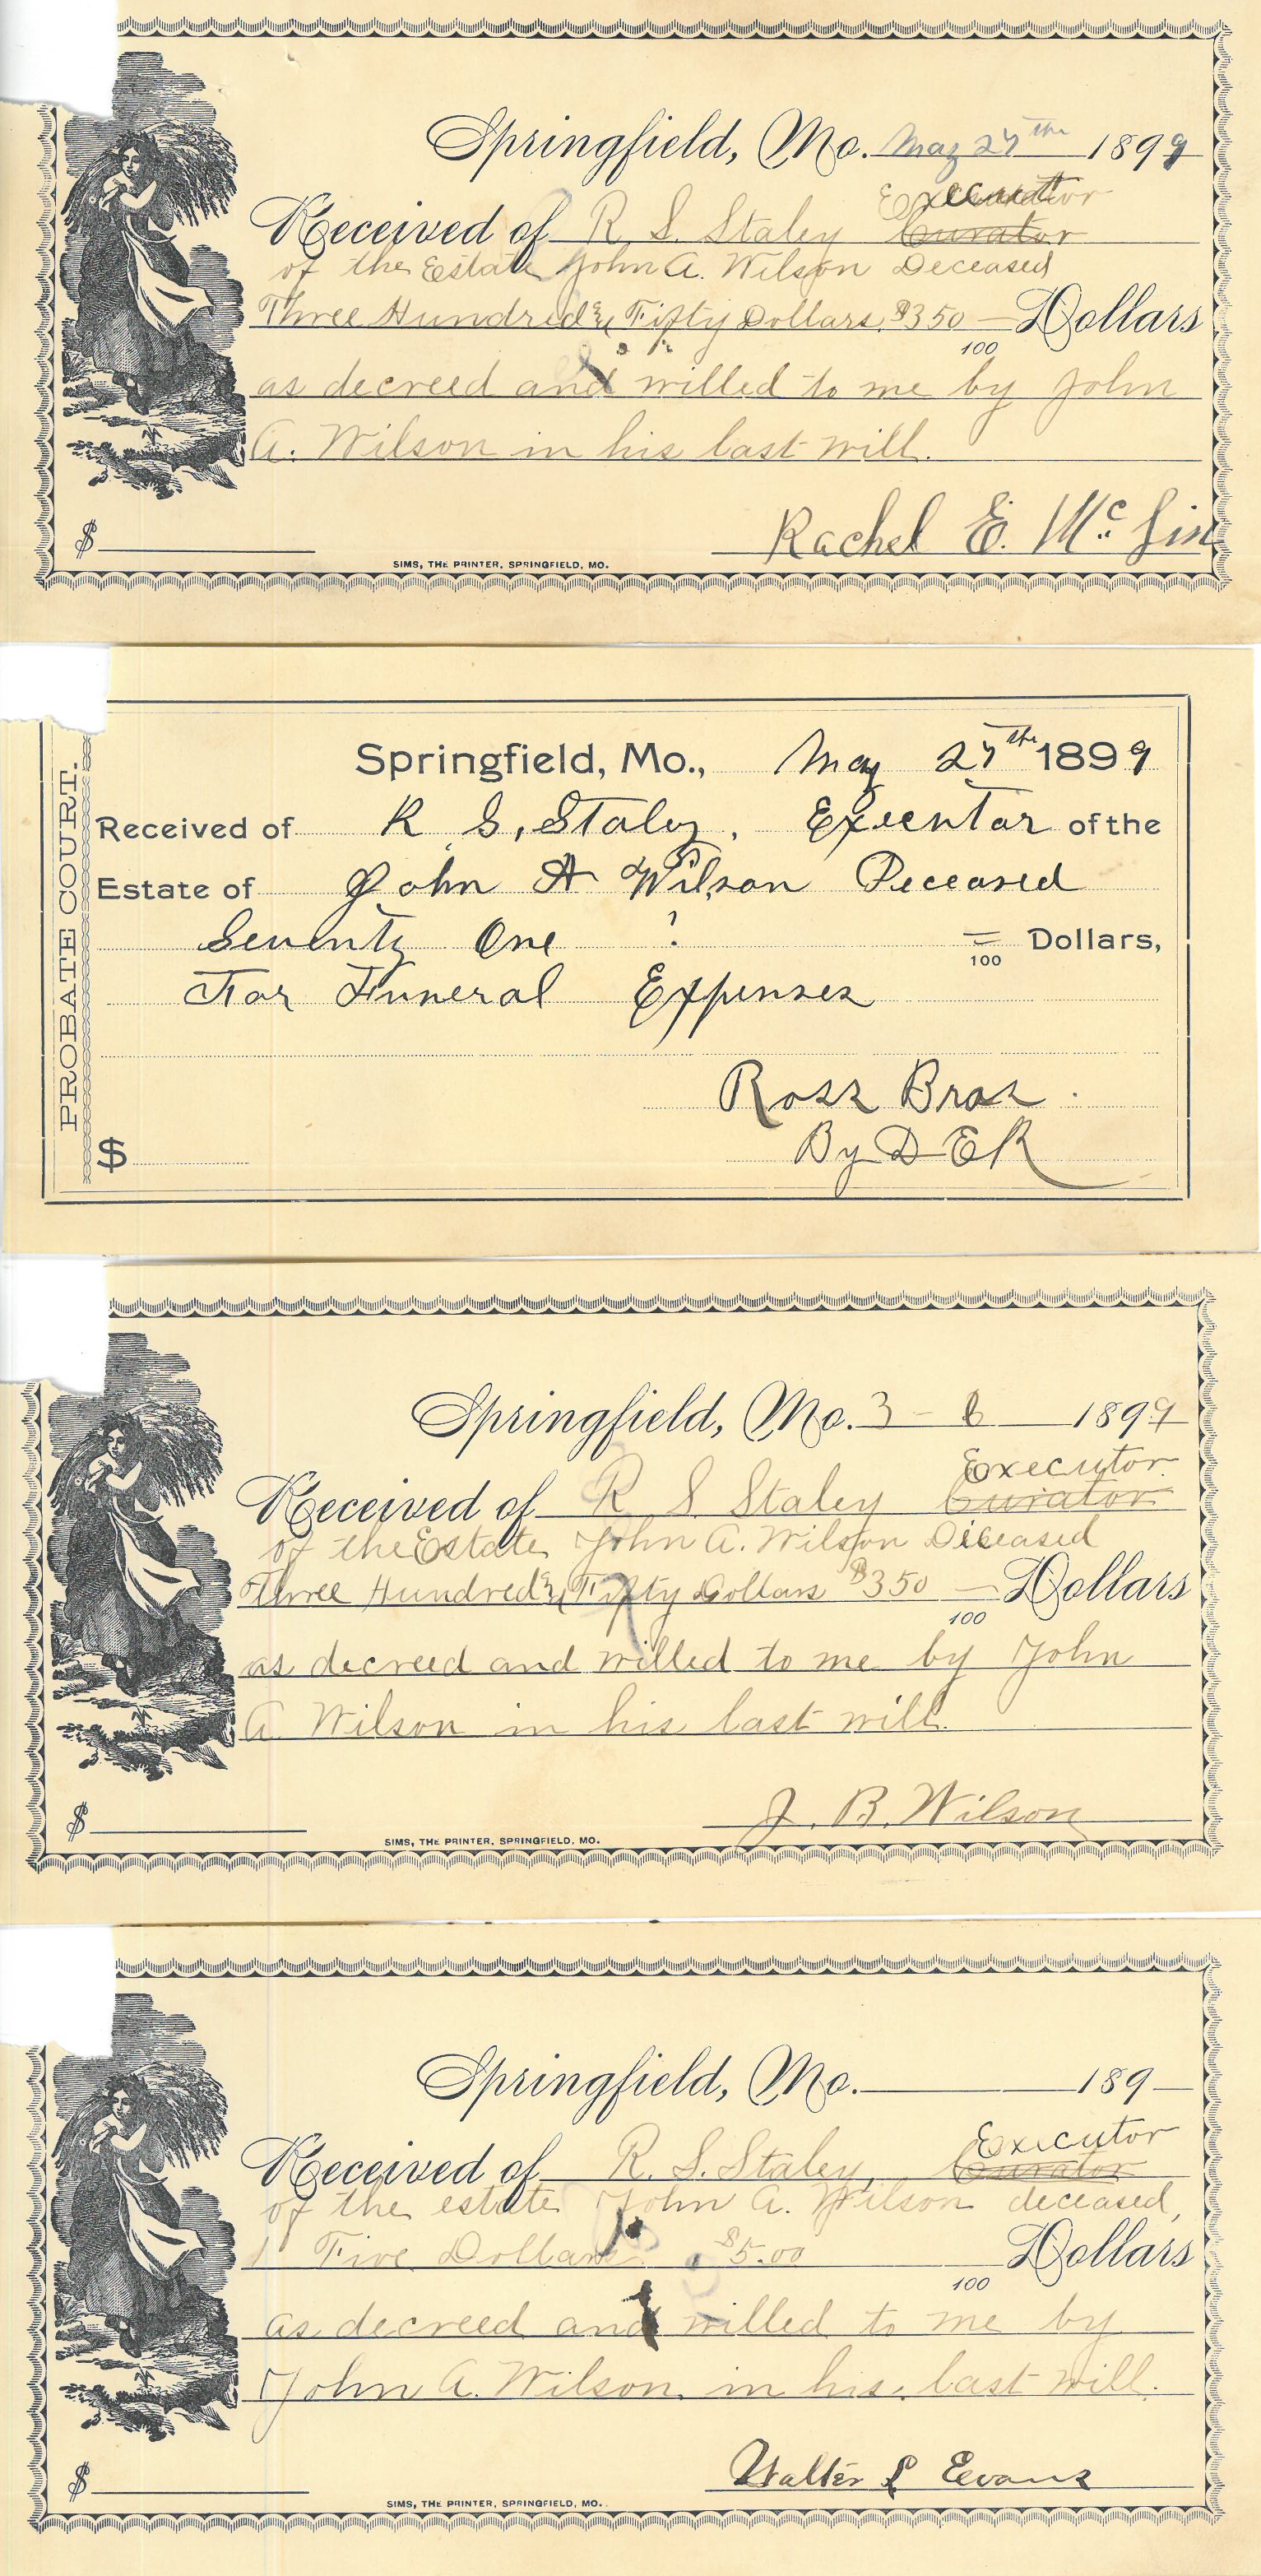 Springfield, Mo. May 27th 1899
Executor
Received of R S. Staley Curator
of the Estate John A. Wilson Deceased
Three Hundred & Fifty Dollars, $350 — Dollars
100
as decreed and willed to me by John
A. Wilson in his last will.
Rachel E. Mc
$
SIMS, THE PRINTER, SPRINGFIELD, MO.
PROBATE COURT.
Springfield, Mo., May 27th 1899
Received of R S, Staley, Executor of the
Estate of John A Wilson Deceased
Seventy One = Dollars,
100
For Funeral Expenses
Ross Bros.
$ By D E R
Springfield, Mo. 3 - 8 1899
Executor
Received of R S Staley Curator
of the Estate John A. Wilson Deceased
Three Hundred & Fifty Dollars $350 — Dollars
100
as decreed and willed to me by John
A Wilson in his last will.
$ J. B. Wilson
SIMS, THE PRINTER, SPRINGFIELD, MO.
Springfield, Mo. 189
Executor
Received of R. S. Staley, Curator
of the estate John A. Wilson deceased,
Five Dollars $5.00 Dollars
100
as decreed and willed to me by
John A. Wilson in his last will.
$ Walter L Evans
SIMS, THE PRINTER, SPRINGFIELD, MO.